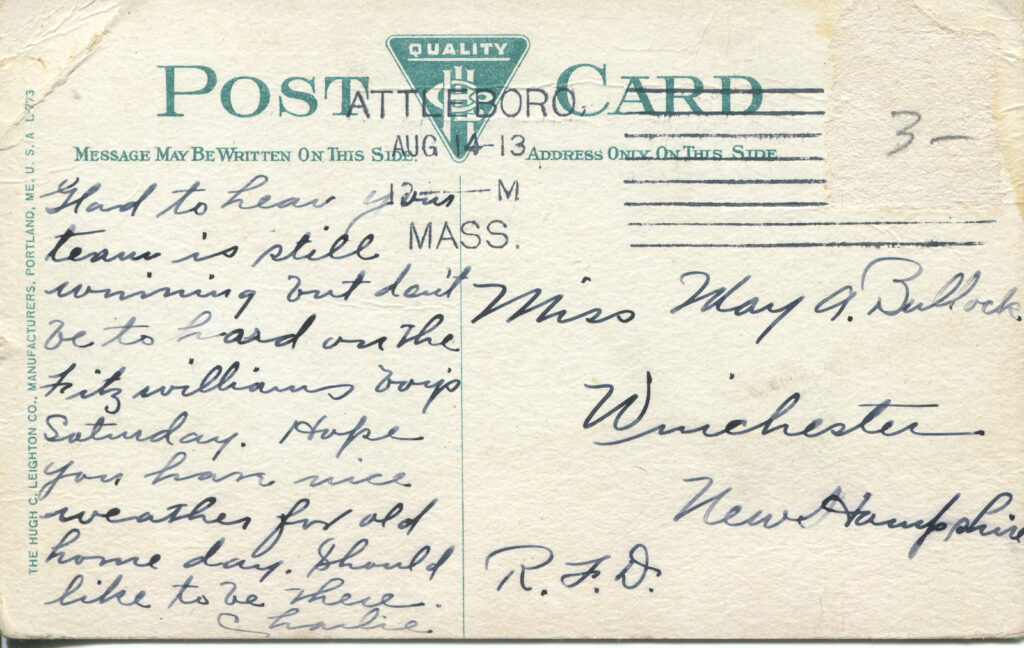 QUALITY
POST CARD
ATTLEBORO.
AUG 14-13
12 — M
MASS.
MESSAGE MAY BE WRITTEN ON THIS SIDE.
ADDRESS ONLY ON THIS SIDE
3-
THE HUGH C. LEIGHTON CO., MANUFACTURERS, PORTLAND, ME. U. S. A L-773
Glad to hear your
team is still
winning but don't
be to hard on the
Fitzwilliams boys
Saturday. Hope
you have nice
weather for old
home day. Should
like to be there.
Charlie.
Miss May A. Bullock.
Winchester.
New Hampshire
R. F. D.